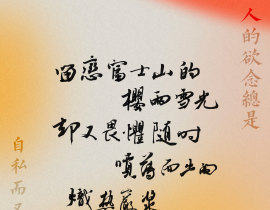 人的欲念總是
留戀富士山的
櫻雨雪光
卻又畏懼隨時
噴薄而出的
熾熱嚴漿
自私而又